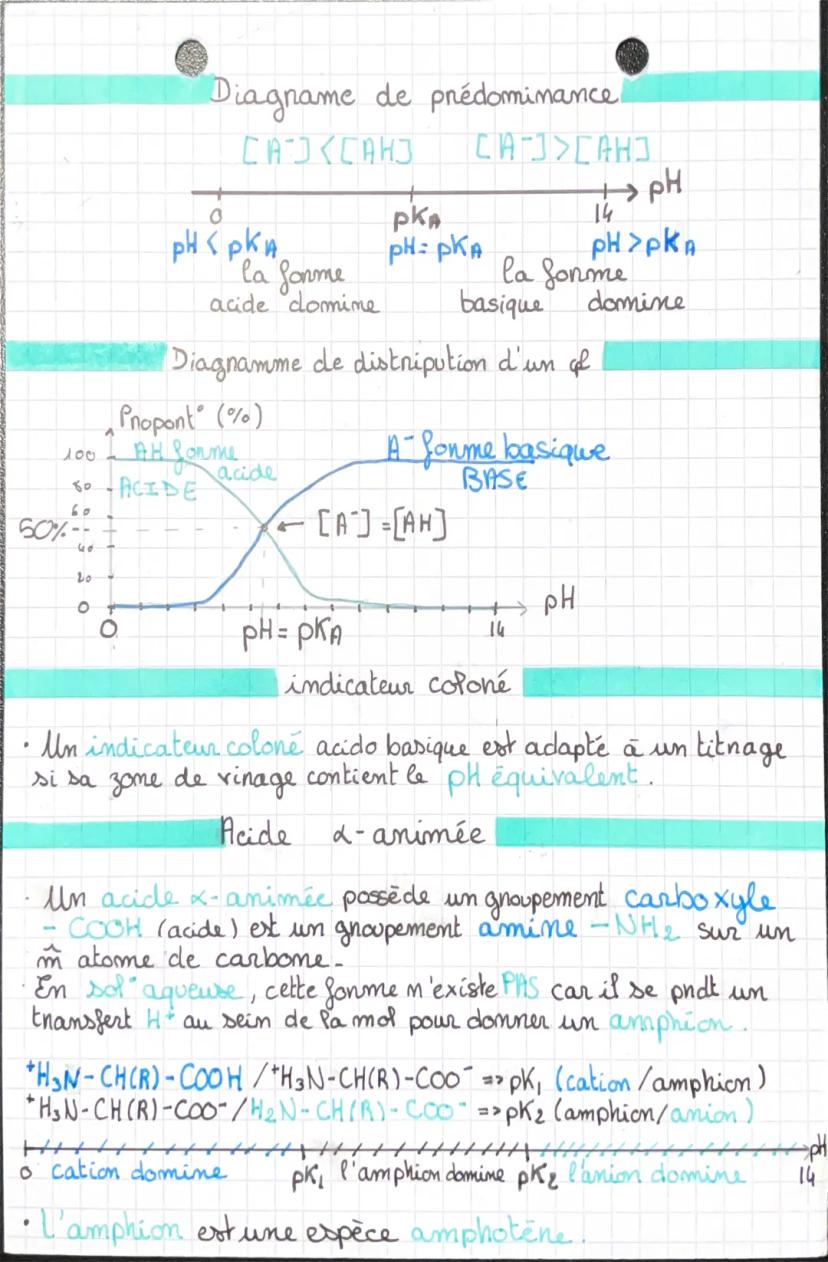 Diagrame de prédominance
[A⁻]<[AH] [A⁻]>[AH]
0 pKA 14 pH
pH < pKA pH = pKA pH > pKA
la forme la forme
acide domine basique domine
Diagramme de distripution d'un
Proport° (%)
100 AH forme acide A⁻ forme basique
80 ACIDE BASE
60
50% ← [A⁻] = [AH]
40
20
0 pH
0 pH = pKA 14
indicateur coloré
• Un indicateur coloré acido basique est adapté à un titrage
si sa zone de virage contient le pH équivalent.
Acide α-animée
· Un acide α-animée possède un groupement carboxyle
- COOH (acide) est un groupement amine -NH₂ sur un
m̂ atome de carbone.
· En sol° aqueuse, cette forme n'existe PAS car il se prdt un
transfert H⁺ au sein de la mol pour donner un amphion.
⁺H₃N-CH(R)-COOH / ⁺H₃N-CH(R)-COO⁻ => pK₁ (cation/amphion)
⁺H₃N-CH(R)-COO⁻ / H₂N-CH(R)-COO⁻ => pK₂ (amphion/anion)
pH
0 cation domine pK₁ l'amphion domine pK₂ l'anion domine 14
• L'amphion est une espèce amphotère.